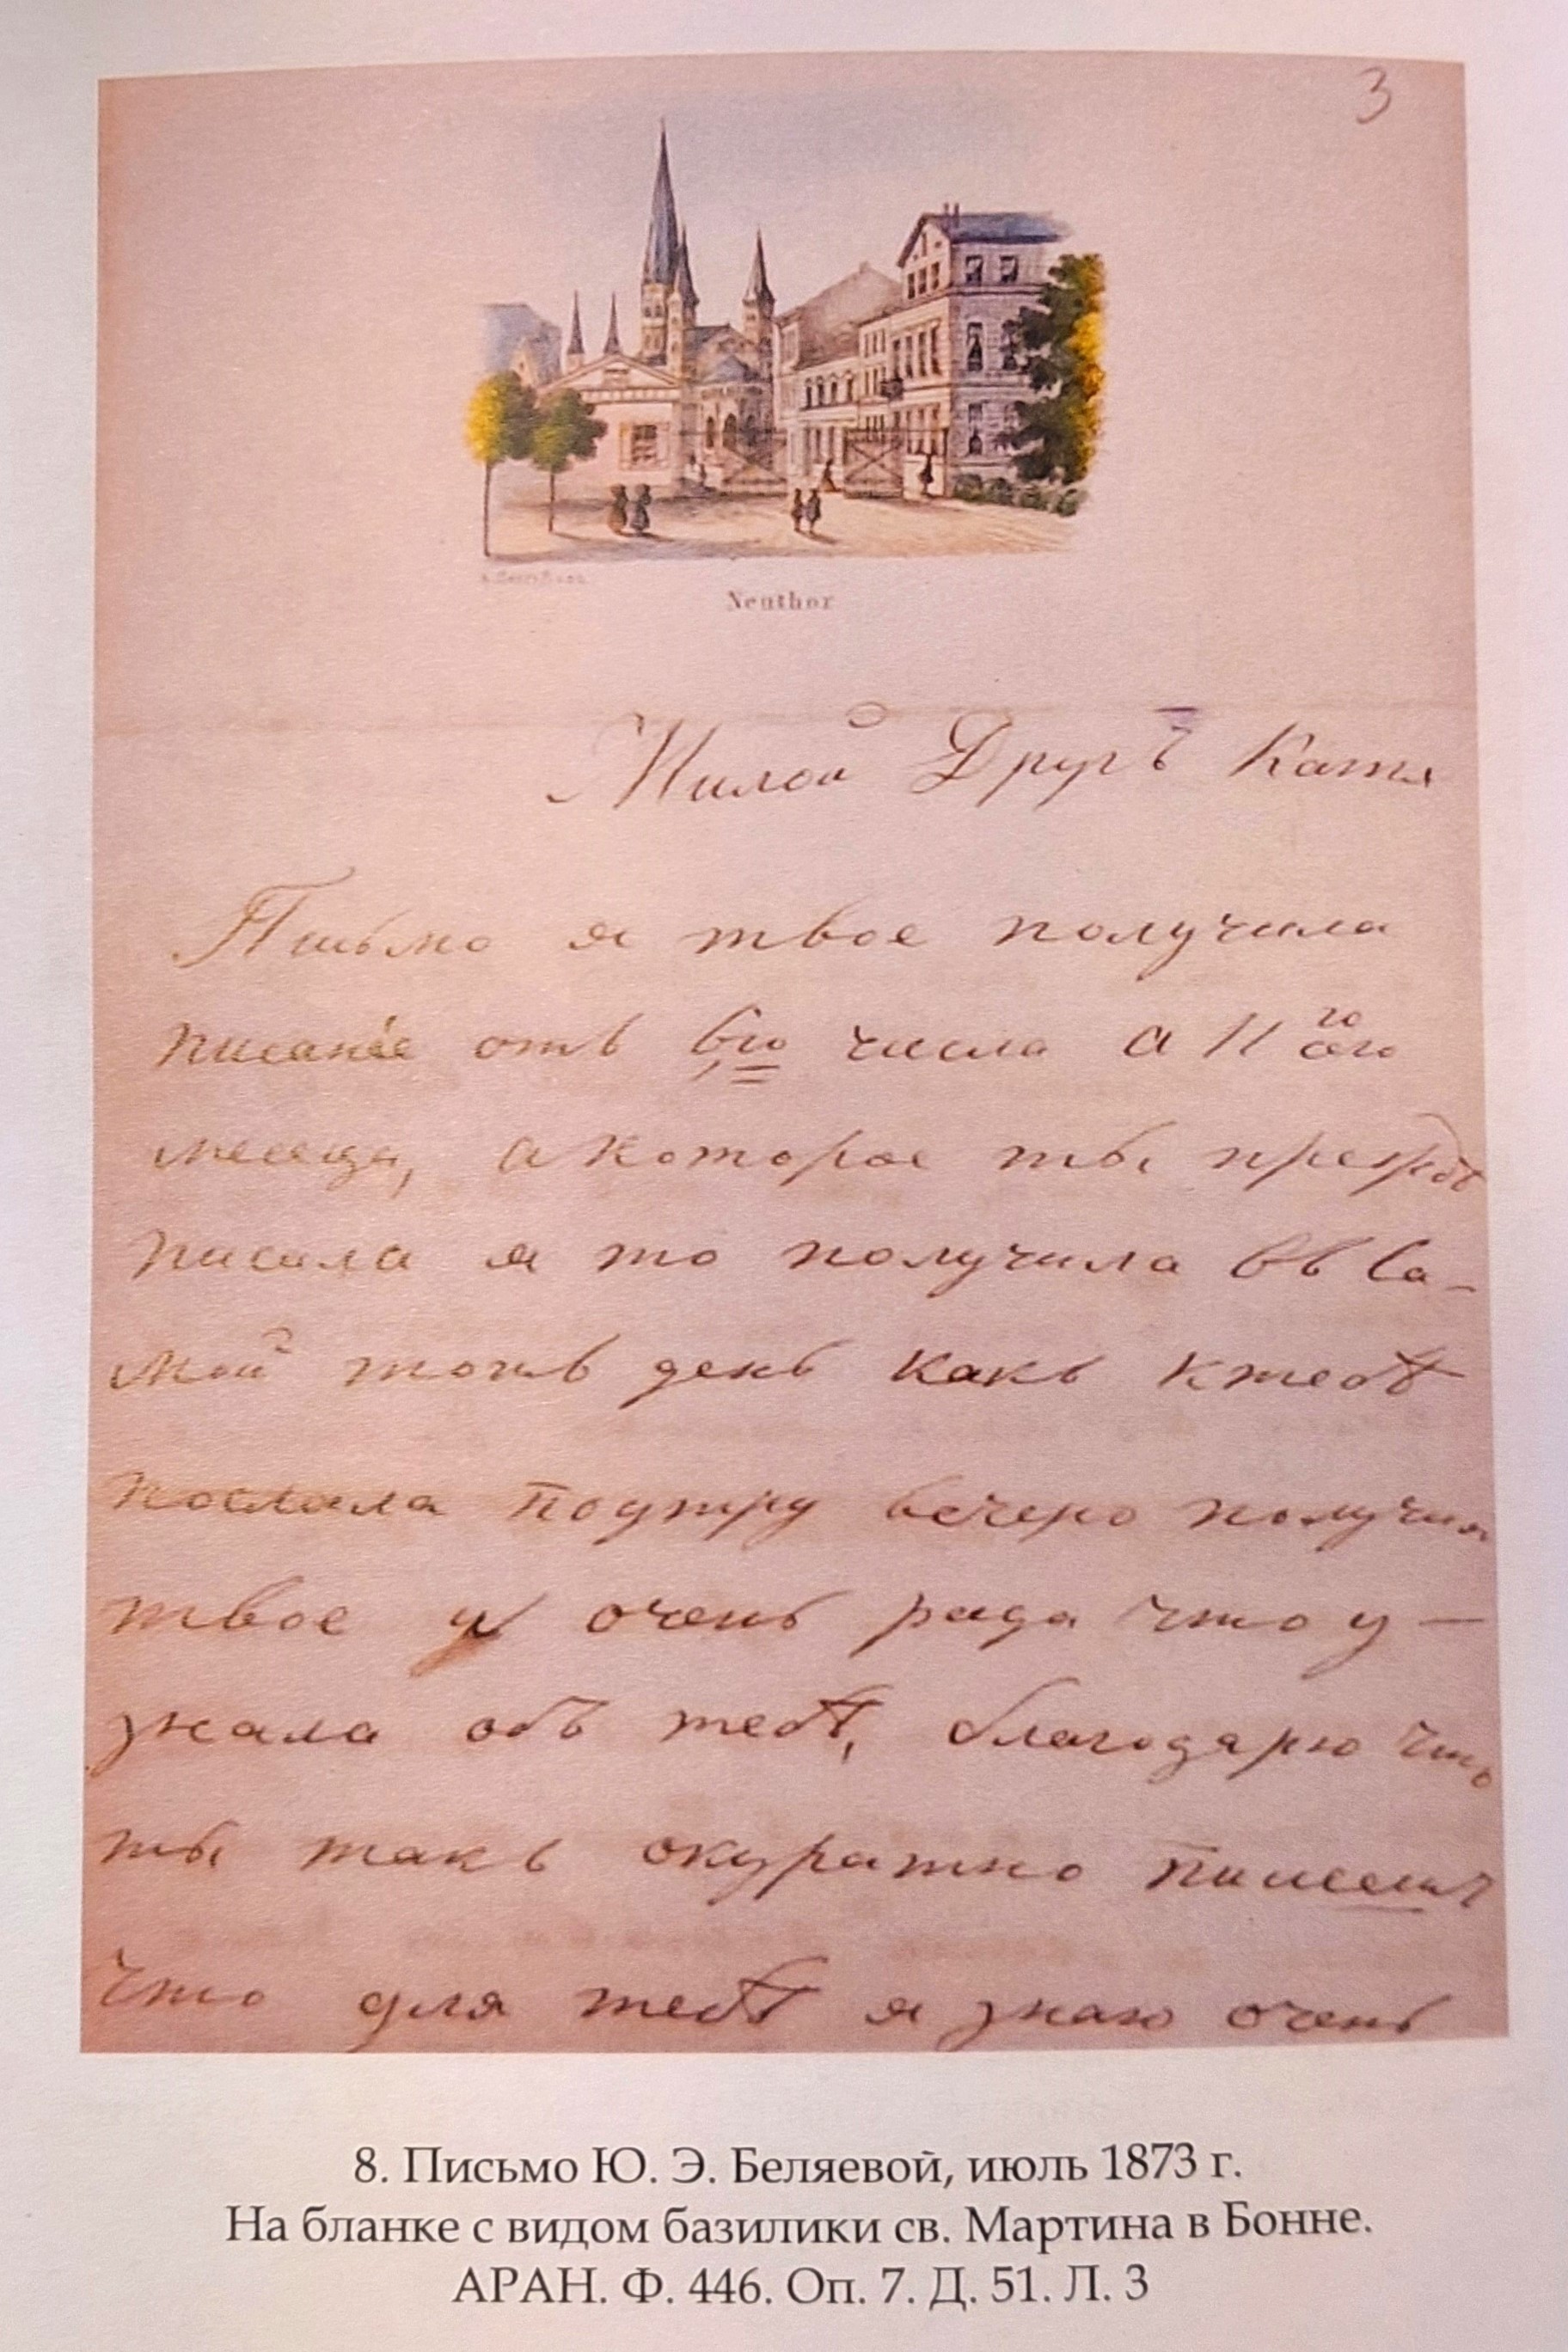 3
Neuthor
Милой Другъ Катя
Письмо я твое получила
писаное отъ 6го числа а 11 го
месеца, а которое ты прежде
писала я то получила въ са-
мой тотъ день какъ ктебѣ
послала поутру вечеро получила
твое я очень рада что у-
знала объ тебѣ, благодарю что
ты такъ окуратно пишешъ
что для тебѣ я знаю очень
8. Письмо Ю. Э. Беляевой, июль 1873 г.
На бланке с видом базилики св. Мартина в Бонне.
АРАН. Ф. 446. Оп. 7. Д. 51. Л. 3